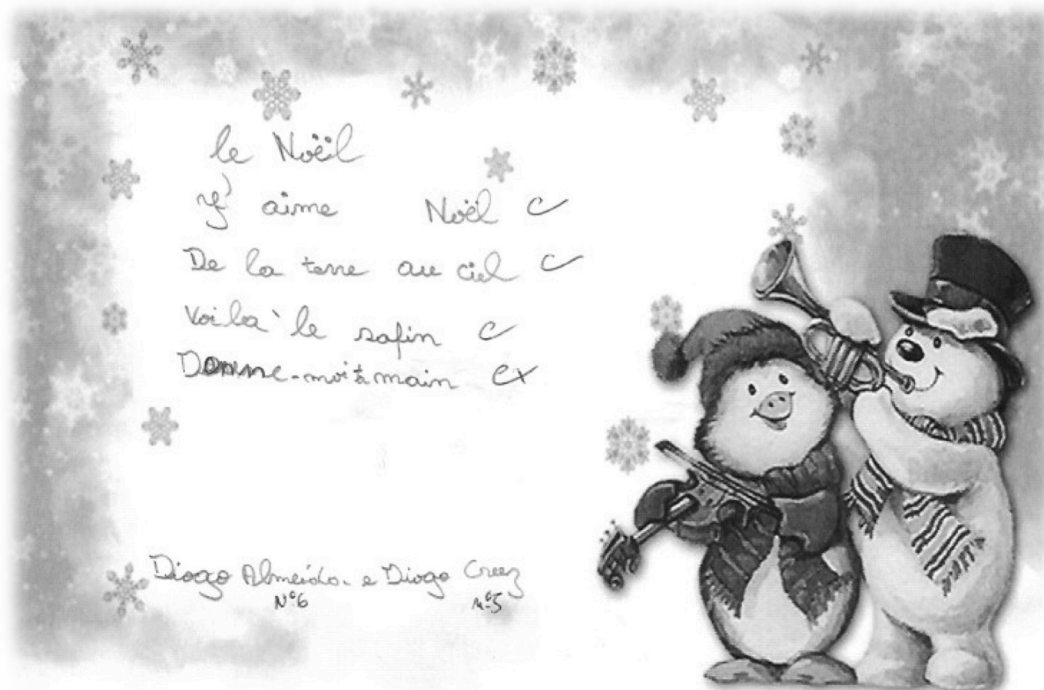 le Noël
J'aime Noël
De la terre au ciel
Voilà le sapin
Donne-moi ta main
Diogo Almeida e Diogo Cruz
Nº6 nº5